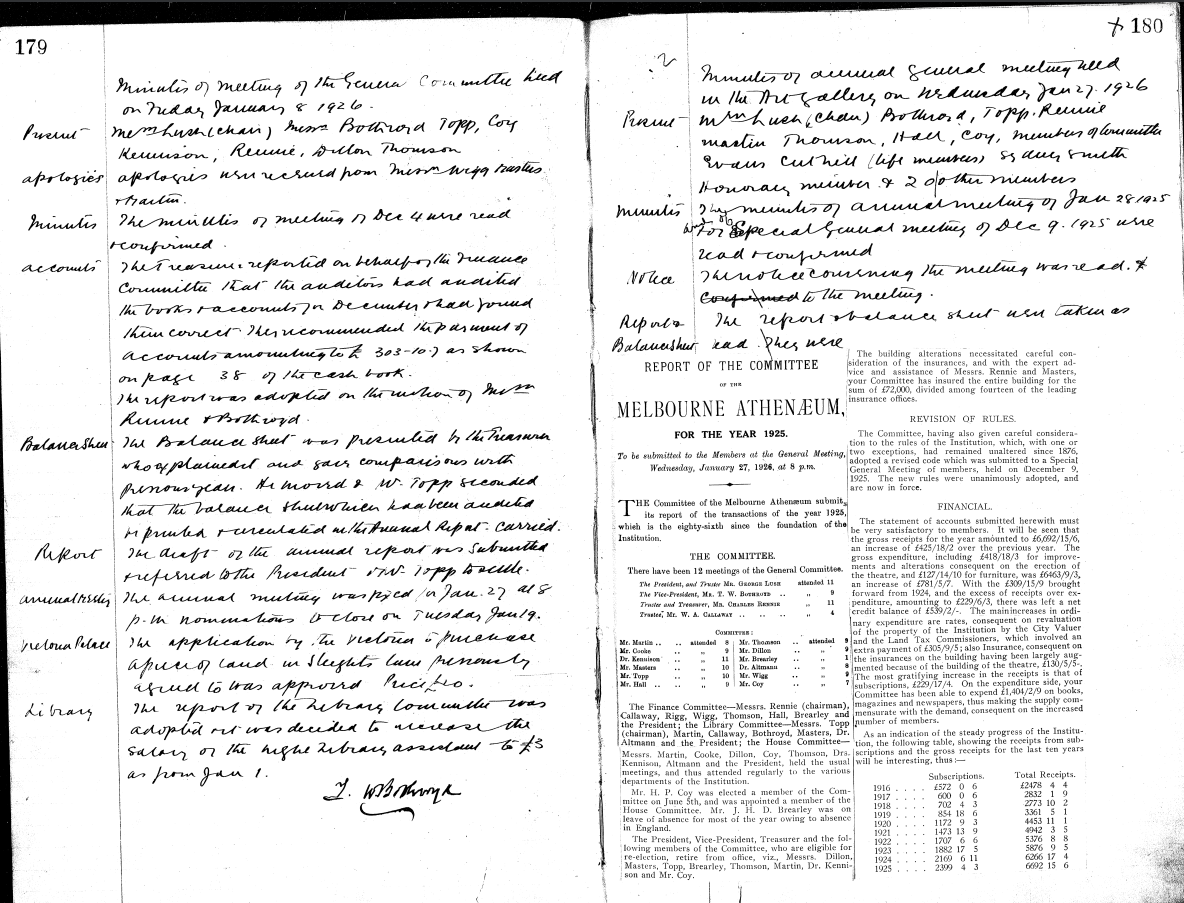 179
Minutes of meeting of the General Committee held
on Friday January 8 1926.
Present
Messrs Lush (chair) Messrs Bothroyd Topp, Coy
Kennison, Rennie, Dillon Thomson
apologies
apologies were received from Messrs Wigg Masters
& Martin.
Minutes
The minutes of meeting of Dec 4 were read
& confirmed.
accounts
The Treasurer reported on behalf of the Finance
Committee that the auditors had audited
the books & accounts for December & had found
them correct. They recommended the payment of
accounts amounting to £303-10-7 as shown
on page 38 of the cash book.
The report was adopted on the motion of Messrs
Rennie & Bothroyd.
Balance Sheet
The Balance sheet was presented by the Treasurer
who explained it and gave comparisons with
previous years. He moved & Mr. Topp seconded
that the balance sheet which had been audited
be printed & circulated with the Annual Report. Carried.
Report
The draft of the annual report was submitted
& referred to the President & Mr. Topp to settle.
annual meeting
The annual meeting was fixed for Jan. 27 at 8
p.m. nominations to close on Tuesday Jan 19.
Victoria Palace
The application by the Victoria to purchase
a piece of land in Sleights lane previously
agreed to was approved Price
Library
The report of the Library Committee was
adopted & it was decided to increase the
salary of the night library assistant to £3
as from Jan 1.
T. W Bothroyd
180
Minutes of annual General meeting held
in the Art Gallery on Wednesday Jan 27. 1926
Present
Messrs Lush, (chair) Bothroyd, Topp, Rennie
Martin Thomson, Hall, Coy, members of Committee
Evans Cuthill (life members) Sydney Smith
Honorary member & 20 other members
Minutes
The minutes of annual meeting of Jan 28 1925
and of Special General meeting of Dec 9. 1925 were
read & confirmed
Notice
The notice convening the meeting was read. &
confirmed to the meeting.
Report &
Balance Sheet
The report & balance sheet were taken as
read. They were
REPORT OF THE COMMITTEE
OF THE
MELBOURNE ATHENÆUM,
FOR THE YEAR 1925.
To be submitted to the Members at the General Meeting,
Wednesday, January 27, 1926, at 8 p.m.
THE Committee of the Melbourne Athenæum submit
its report of the transactions of the year 1925,
which is the eighty-sixth since the foundation of the
Institution.
THE COMMITTEE.
There have been 12 meetings of the General Committee.
The President, and Trustee Mr. GEORGE LUSH attended 11
The Vice-President, Mr. T. W. BOTHROYD .. ,, 9
Trustee and Treasurer, Mr. CHARLES RENNIE ,, 11
Trustee, Mr. W. A. CALLAWAY .. .. .. ,, 4
COMMITTEE:
Mr. Martin .. .. attended 8 Mr. Thomson .. attended 9
Mr. Cooke .. ,, 9 Mr. Dillon .. ,, 9
Dr. Kennison .. ,, 11 Mr. Brearley .. ,, 1
Mr. Masters .. ,, 10 Dr. Altmann .. ,, 8
Mr. Topp .. ,, 10 Mr. Wigg .. ,, 9
Mr. Hall .. .. ,, 9 Mr. Coy .. ,, 7
The Finance Committee—Messrs. Rennie (chairman),
Callaway, Rigg, Wigg, Thomson, Hall, Brearley and
the President; the Library Committee—Messrs. Topp
(chairman), Martin, Callaway, Bothroyd, Masters, Dr.
Altmann and the President; the House Committee—
Messrs. Martin, Cooke, Dillon, Coy, Thomson, Drs.
Kennison, Altmann and the President, held the usual
meetings, and thus attended regularly to the various
departments of the Institution.
Mr. H. P. Coy was elected a member of the Com-
mittee on June 5th, and was appointed a member of the
House Committee. Mr. J. H. D. Brearley was on
leave of absence for most of the year owing to absence
in England.
The President, Vice-President, Treasurer and the fol-
lowing members of the Committee, who are eligible for
re-election, retire from office, viz., Messrs. Dillon,
Masters, Topp, Brearley, Thomson, Martin, Dr. Kenni-
son and Mr. Coy.
The building alterations necessitated careful con-
sideration of the insurances, and with the expert ad-
vice and assistance of Messrs. Rennie and Masters,
your Committee has insured the entire building for the
sum of £72,000, divided among fourteen of the leading
insurance offices.
REVISION OF RULES.
The Committee, having also given careful considera-
tion to the rules of the Institution, which, with one or
two exceptions, had remained unaltered since 1876,
adopted a revised code which was submitted to a Special
General Meeting of members, held on December 9,
1925. The new rules were unanimously adopted, and
are now in force.
FINANCIAL.
The statement of accounts submitted herewith must
be very satisfactory to members. It will be seen that
the gross receipts for the year amounted to £6,692/15/6,
an increase of £425/18/2 over the previous year. The
gross expenditure, including £418/18/3 for improve-
ments and alterations consequent on the erection of
the theatre, and £127/14/10 for furniture, was £6463/9/3,
an increase of £781/5/7. With the £309/15/9 brought
forward from 1924, and the excess of receipts over ex-
penditure, amounting to £229/6/3, there was left a net
credit balance of £539/2/-. The main increases in ordi-
nary expenditure are rates, consequent on revaluation
of the property of the Institution by the City Valuer
and the Land Tax Commissioners, which involved an
extra payment of £305/9/5; also Insurance, consequent on
the insurances on the building having been largely aug-
mented because of the building of the theatre, £130/5/5-.
The most gratifying increase in the receipts is that of
subscriptions, £229/17/4. On the expenditure side, your
Committee has been able to expend £1,404/2/9 on books,
magazines and newspapers, thus making the supply com-
mensurate with the demand, consequent on the increased
number of members.
As an indication of the steady progress of the Institu-
tion, the following table, showing the receipts from sub-
scriptions and the gross receipts for the last ten years
will be interesting, thus:—
Subscriptions. Total Receipts.
1916 .... £572 0 6 £2478 4 4
1917 .... 600 0 6 2832 1 9
1918 .... 702 4 3 2773 10 2
1919 .... 854 18 6 3361 5 1
1920 .... 1172 9 3 4453 11 1
1921 .... 1473 13 9 4942 3 5
1922 .... 1707 6 6 5376 8 8
1923 .... 1882 17 5 5876 9 5
1924 .... 2169 6 11 6266 17 4
1925 .... 2399 4 3 6692 15 6